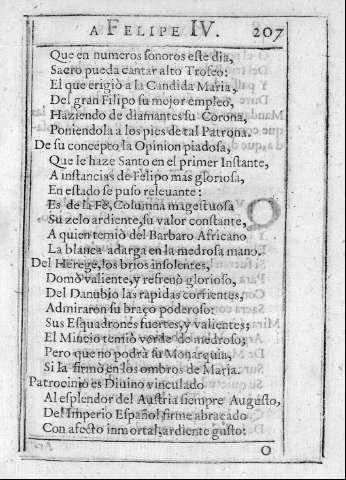 A FELIPE IV. 207
Que en numeros sonoros este dia,
Sacro pueda cantar alto Trofeo:
El que erigiò a la Candida Maria,
Del gran Filipo su mejor empleo,
Haziendo de diamantes su Corona,
Poniendola a los pies de tal Patrona.
De su concepto la Opinion piadosa,
Que le haze Santo en el primer Instante,
A instancias de Felipo más gloriosa,
En estado se puso releuante:
Es de la Fè, Columna magestuosa
Su zelo ardiente, su valor constante,
A quien temiò del Barbaro Africano
La blanca adarga en la medrosa mano.
Del Herege, los brios insolentes,
Domò valiente, y refrenò glorioso,
Del Danubio las rapidas corrientes,
Admiraron su braço poderoso:
Sus Esquadrones fuertes, y valientes;
El Mincio temiò verde de medroso;
Pero que no podrà su Monarquia,
Si la firmò en los ombros de Maria.
Patrocinio es Diuino vinculado
Al esplendor del Austria siempre Augusto,
Del Imperio Español firme abraçado
Con afecto inmortal, ardiente gusto:
O